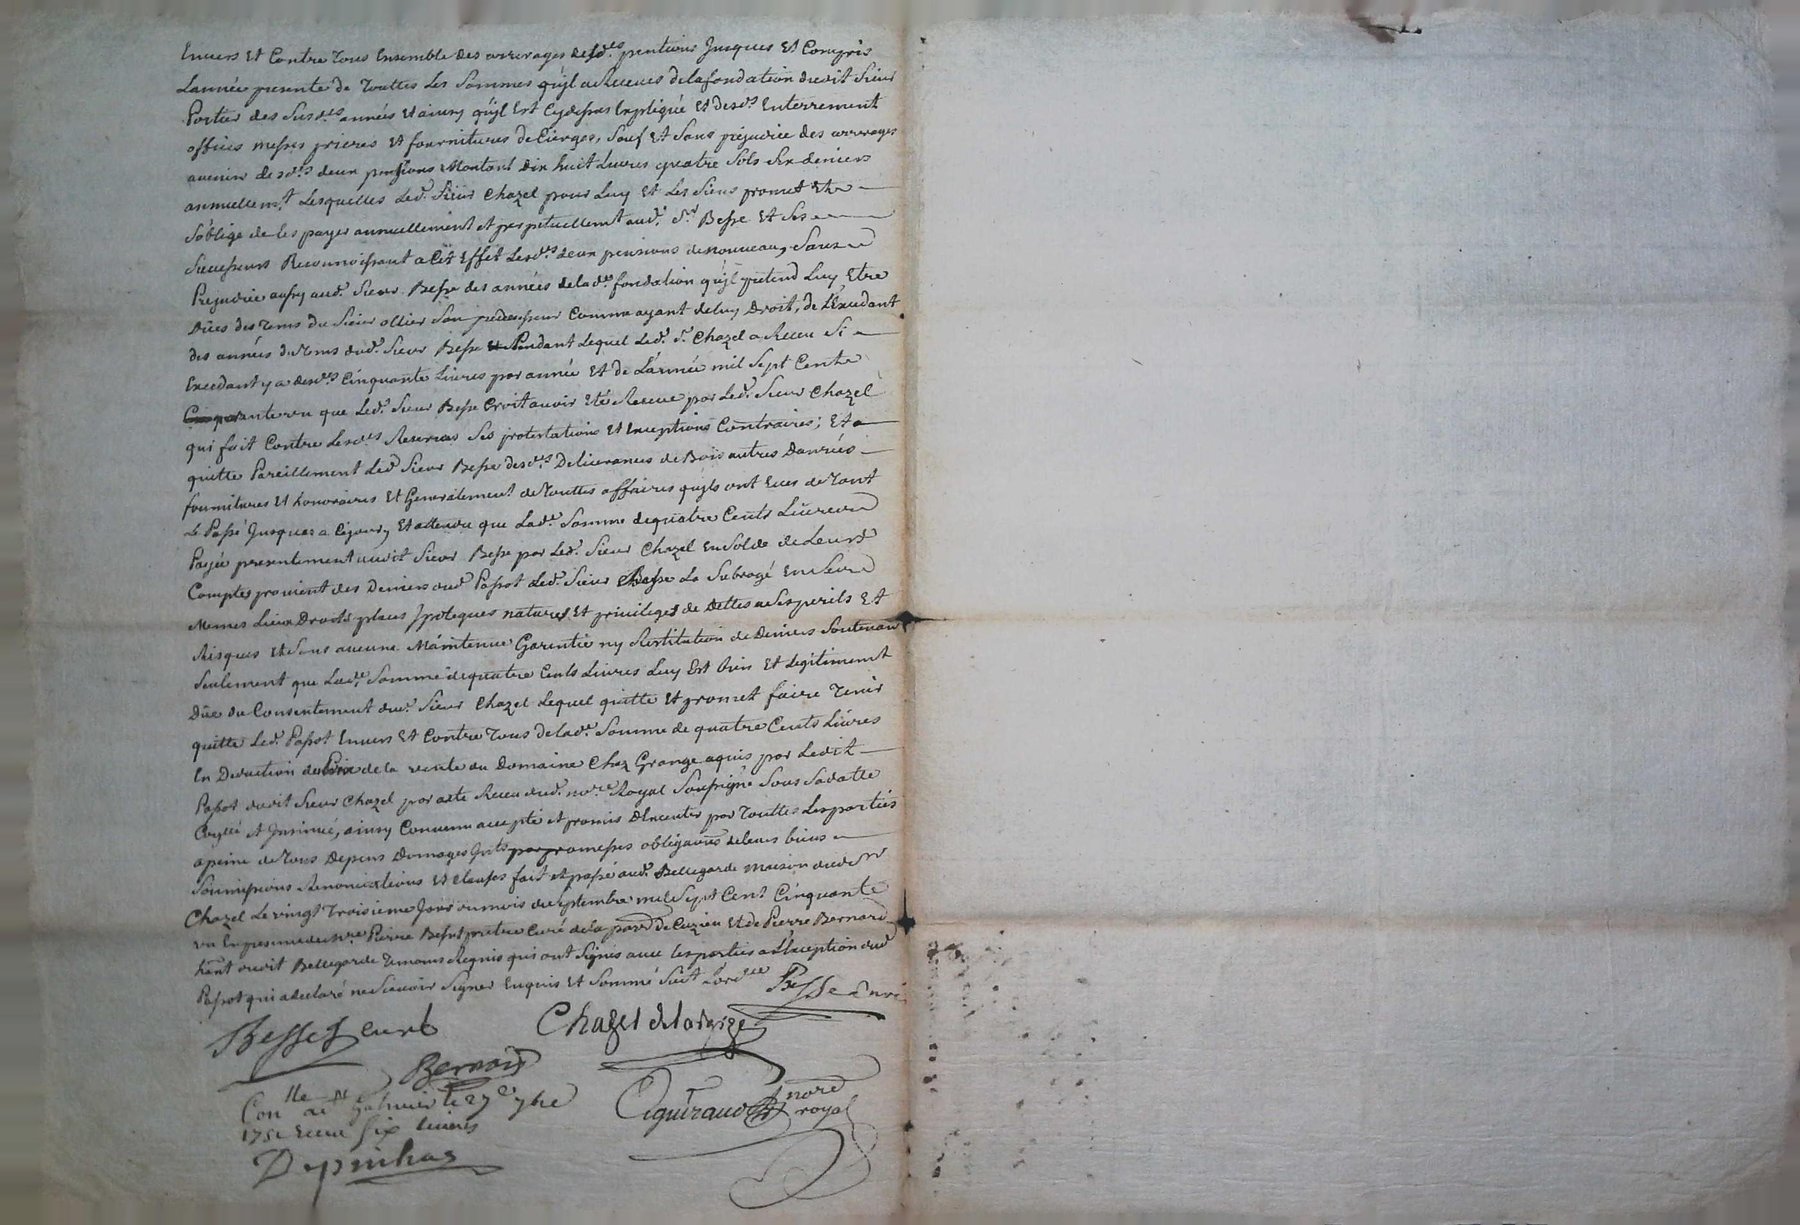 Envers Et Contre tous Ensemble des arrerages desd.es pentions Jusques Et Compris
Lannée presente de Touttes Les Sommes quÿl a Receues de la fondation dudit Sieur
Portier des Susd.es années Et ainsy quÿl Est Cydessus Expliqué Et desd.s Enterrement
offices messes prieres Et fournitures de Cierges, Sauf Et Sans préjudice des arrerages
avenir desd.es deux pensions Montant Dix huit Livres quatre Sols Six deniers
annuellem.t Lesquelles Led. Sieur Chazel pour Luy Et Les Siens promet Et
S'oblige de les payer annuellement et perpetuellement aud. S.r Besse Et Ses
Successeurs Reconnoissant a Cet Effet Lesd.es deux pensions de nouveau, Sans
Prejudice aussy aud. Sieur Besse des années de lad.e fondation quÿl pretend Luy Etre
Dües des tems du Sieur ollier Son predecesseur Comme ayant de luy Droit, de L'Excedant
des années du tems dud. Sieur Besse Pendant Lequel Led. S.r Chazel a Receu Si
Excedant y a desd.es Cinquante Livres par année Et de L'année mil Sept Cent
Cinquante un que Led. Sieur Besse Croit avoir Eté Receue par Led. Sieur Chazel
qui fait Contre Lesd.es Reserves Ses protestations Et Exceptions Contraires; Et
quitte Pareillement Led. Sieur Besse desd.es Delivrances de Bois autres Danrées
fournitures Et honoraires Et Generalement de Touttes affaires quÿls ont Eues de Tout
Le Passé Jusques a Cejour, Et attendu que Lad.e Somme de quatre Cents Livres
Payée presentement audit Sieur Besse par Led. Sieur Chazel En Solde de Leurs
Comptes provient des Deniers dud. Passot Led. Sieur Besse La Subrogé En Ses
Memes Lieux Droits places Jpoteques natures Et privileges de Dettes a Ses perils Et
Risques Et Sans aucune Maintenue Garentie ny Restitution de Deniers Soutenant
Seulement que Lad.e Somme de quatre Cents Livres Luy Est bien Et Legitimement
Düe du Consentement dud. Sieur Chazel Lequel quitte Et promet faire Tenir
quitte Led. Passot Envers Et Contre Tous de Lad.e Somme de quatre Cents Livres
En Deduction du Prix de la vente du Domaine Chez Grange aquis par Ledit
Passot dudit Sieur Chazel par acte Receu dud. no.re Royal Soussigné Sous Sa datte
Et Jnsinué, ainsy Convenu accepté et promis Executer par Touttes Les parties
a peine de Tous Depens Domages Jnts promesses obligations de leurs biens
Soumissions Renonciations Et clauses fait et passé aud. Bellegarde maison dud. S.r
Chazel Le vingt Troisieme Jour du mois de Septembre mil Sept Cent Cinquante
un En presence de m.re Pierre Besset pretre Curé de la par.sse de Cuzieu Et de Pierre Bernard
h.ant audit Bellegarde Temoins Requis qui ont Signés avec Les parties a L'Exception dud.
Passot qui a declaré ne Scavoir Signer Enquis Et Sommé Suiv.t Lord.ce Besse Curé
Besset curé Chazel
Bernard
Con.lle a S.t Galmier le 27.e 7bre
1751 Receu Six deniers
nore
royal